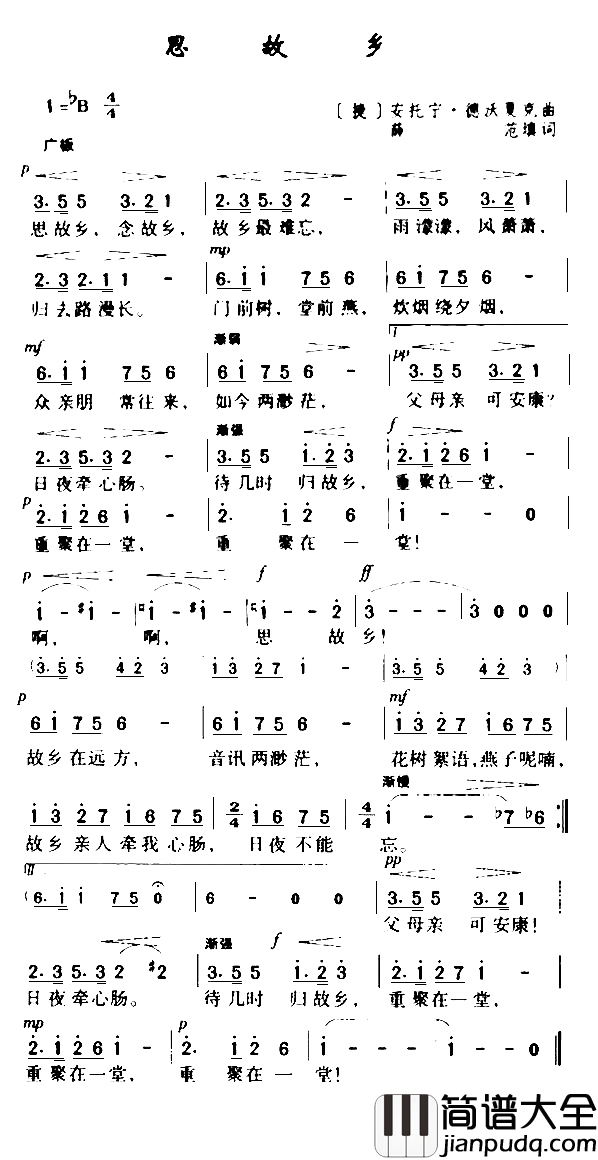 思 故 乡
1=♭B 4/4
〔捷〕安托宁·德沃夏克 曲
广板
薛 范填词
p
3·5 5 3·2 1 | 2·3 5·3 2 - | 3·5 5 3·2 1
思故乡，念故乡，故乡最难忘，雨濛濛，风萧萧，
mp
2·3 2·1 1 - | 6·i i 7 5 6 | 6 i 7 5 6 -
归去路漫长。门前树，堂前燕，炊烟绕夕烟，
mf 渐弱 1 pp
6·i i 7 5 6 | 6 i 7 5 6 - | 3·5 5 3·2 1
众亲朋 常往来，如今两渺茫，父母亲 可安康？
渐强 f
2·3 5·3 2 - | 3·5 5 i·2 3 | 2·i 2 6 i -
日夜牵心肠。待几时 归故乡，重聚在一堂，
p
2·i 2 6 i - | 2· i 2 6 | i - - 0
重聚在一堂，重 聚在 一 堂！
p f ff
i - #i - | ♮i - #i - | 5 i - 2 | 3 - - - | 3 0 0 0
啊，啊，思 故 乡！
(3·5 5 4 2 3 | i 3 2 7 i - | 3·5 5 4 2 3)
p mf
6 i 7 5 6 - | 6 i 7 5 6 - | i 3 2 7 i 6 7 5
故乡在远方，音讯两渺茫，花树絮语，燕子呢喃，
渐慢
i 3 2 7 i 6 7 5 | 2/4 i 6 7 5 | 4/4 i - - ♭7 ♭6 :‖
故乡亲人牵我心肠，日夜不能 忘。
fff pp
(6·i i 7 5 0 | 6 - 0 0 | 3·5 5 3·2 1
父母亲 可安康！
渐强 f
2·3 5·3 2 #2 | 3·5 5 i·2 3 | 2·i 2 7 i -
日夜牵心肠。待几时 归故乡，重聚在一堂，
mp p
2·i 2 6 i - | 2· i 2 6 | i - - - | i - - 0 ‖
重聚在一堂，重 聚在一 堂！
简谱大全
jianpudq.com